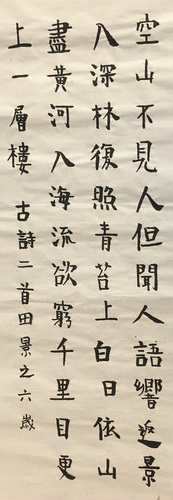 空山不見人但聞人語響返景
入深林復照青苔上白日依山
盡黃河入海流欲窮千里目更
上一層樓 古詩二首田景之六歲